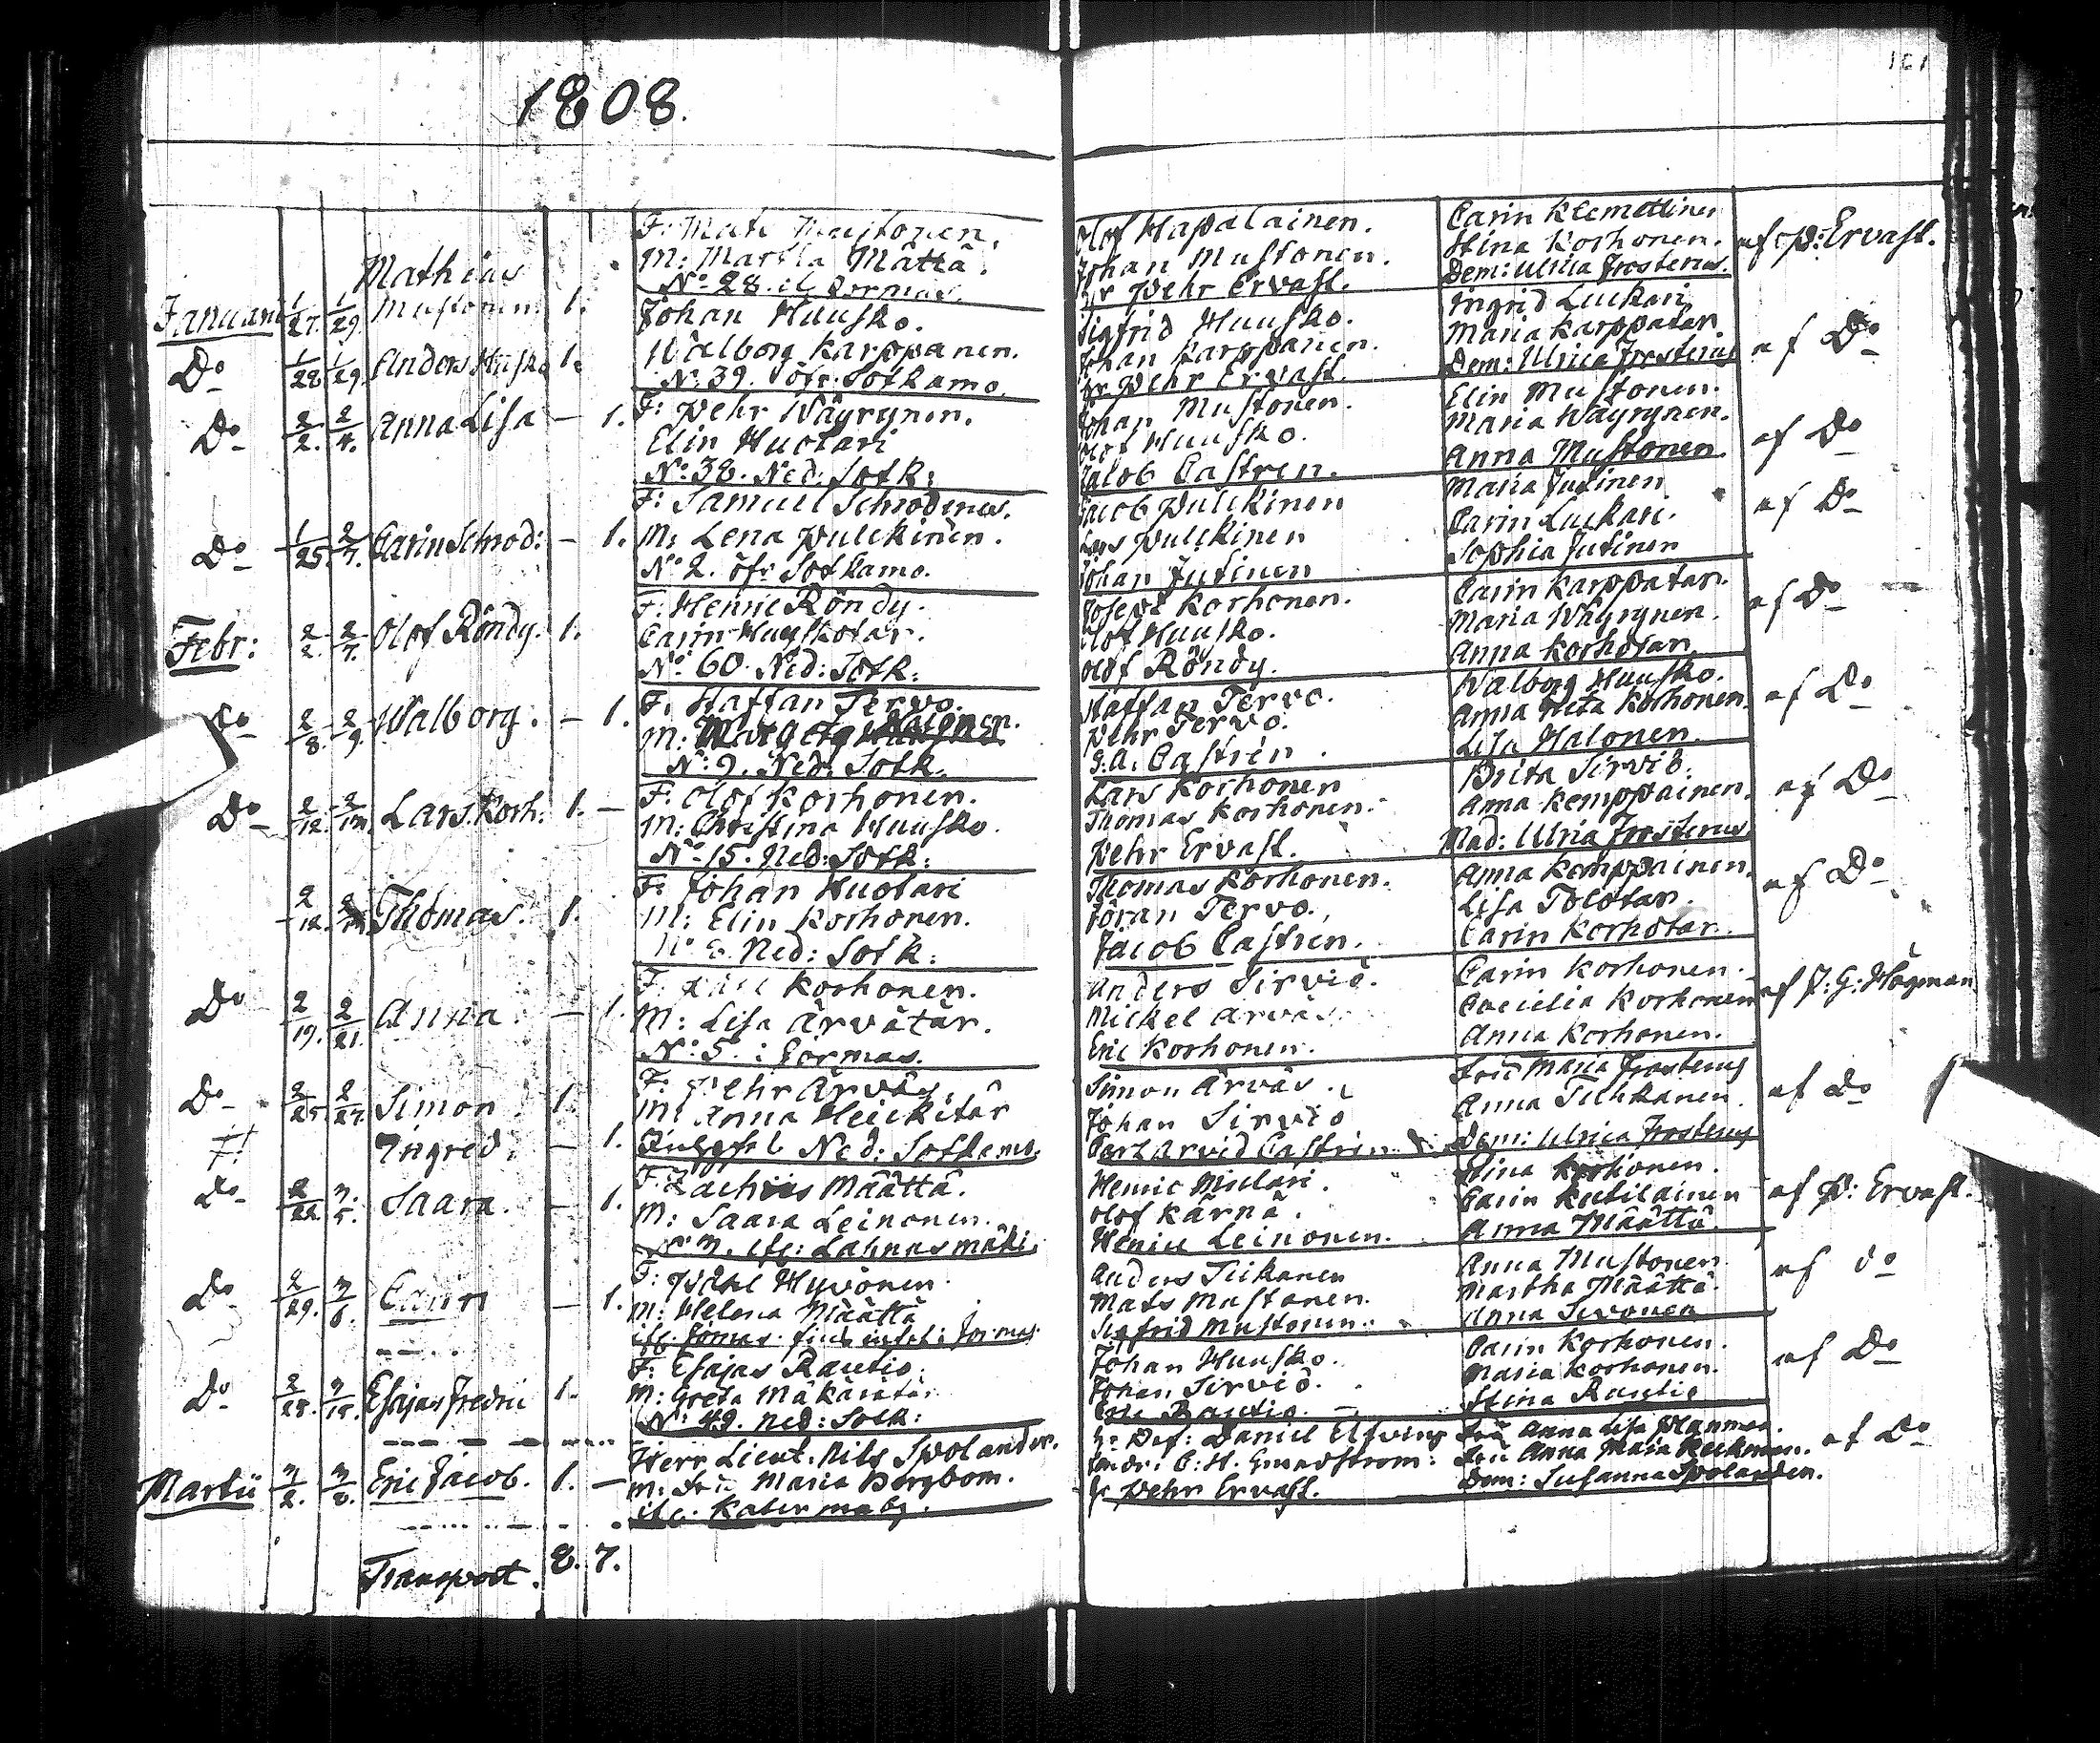 1808.
161
F: Mats Mustonen. Olof Hapalainen. Carin Klemettinen
Mathias M: Martha Mättä. Johan Mustonen. Stina Korhonen. af P: Ervast.
Januari 1/27. 1/29. Mustonen 1. No 28. Hr Pehr Ervast. Dem: Ulrica Frosterus.
Johan Huusko. Sigfrid Huusko. Ingrid Luckari
Do 1/28 1/29. Anders Husko 1. Walborg Karppanen. Johan Karppanen. Maria Karppatar. af Do
No 39. öfr: Sotkamo. Hr Pehr Ervast. Dem: Ulrica Frosterus
F: Pehr Wäyrynen. Johan Mustonen. Elin Mustonen.
Do 2/2. 2/4. Anna Lisa — 1. Elin Huotari Olof Huusko. Maria Wäyrynen. af Do
No: 38. Ned: Sotk: Jacob Castren. Anna Mustonen.
F: Samuel Schroderus. Jacob Pulckinen Maria Jutinen
Do 1/25. 2/7. Carin Schrod: — 1. M: Lena Pulckinen. Lars Pulckinen Carin Luckari. af Do
No 2. öfr Sotkamo. Johan Jutinen Sophia Jutinen
F: Henric Röndy. Joseph Korhonen. Carin Karppatar.
Febr: 2/2. 2/7. Olof Röndy. 1. Carin Huuskotar. Olof Huusko. Maria Wäyrynen. af Do
No: 60. Ned: Sotk: Olof Röndy. Anna Korhotar.
F: Staffan Tervo. Staffan Tervo. Walborg Huusko.
Do 2/8. 2/9. Walborg. — 1. M: Pehr Tervo. Anna Greta Korhonen. af Do
No: 9. Ned: Sotk. G: A: Castrén. Lisa Halonen.
F: Olof Korhonen. Lars Korhonen Brita Sirviö.
Do 2/12. Lars Korh: 1. — M: Christina Huusko. Thomas Korhonen. Anna Kemppainen. af Do
No 15. Ned: Sotk: Pehr Ervast. Mad: Ulrica Frosterus
F: Johan Huotari Thomas Korhonen. Anna Kemppainen.
2/12. Thomas. 1. M: Elin Korhonen. Jöran Tervo. Lisa Tolotar. af Do
Ned: Sotk: Jacob Castren. Carin Korhotar.
F: Korhonen. Anders Sirviö. Carin Korhonen.
Do 2/19. 2/21. Anna. — 1. M: Lisa Ärvätär. Mickel Ärväs. Caecilia Korhonen af J: G: Högman
No: 5. i Jormas. Eric Korhonen. Anna Korhonen.
F: Pehr Ärväs. Simon Ärväs. Fru Maria Frosterus
Do 2/25 2/27. Simon 1. M: Anna Heickitär Johan Sirviö Anna Tiihkanen. af do
Ingred. — 1. Ned: Sotkamo. Carl Arvid Castrén Dem: Ulrica Frosterus
F: Zachris Määttä. Henric Mulari. Stina Korhonen.
Do 2/22. 3/5. Saara. — 1. M: Saara Leinonen. Olof Kärnä. Carin Kutilainen af P: Ervast.
No 3. Lahnasmäki. Henric Leinonen. Anna Määttä.
F: Påhl Hyvönen. Anders Tiikanen Anna Mustonen.
Do 2/29. 3/6. Carin — 1. M: Helena Määttä Mats Mustonen. Martha Määttä. af do
Sigfrid Mustonen. Anna Sirvonen
F: Esajas Rautio. Johan Huusko. Carin Korhonen.
Do 2/28. Esajas Fredric 1. M: Greta Mäkärätär Johan Sirviö. Maria Korhonen. af Do
No: 49. Ned: Sotk: Eric Rautio. Stina Rautio
Herr Lieut. Nils Spolander. Daniel Elfving Fru Anna Lisa
Martii 3/2. Eric Jacob. 1. — M: Fru Maria Bergbom. Fru Anna Maria af Do
Hr Pehr Ervast. Dem: Susanna Spolander.
Transport. 8. 7.